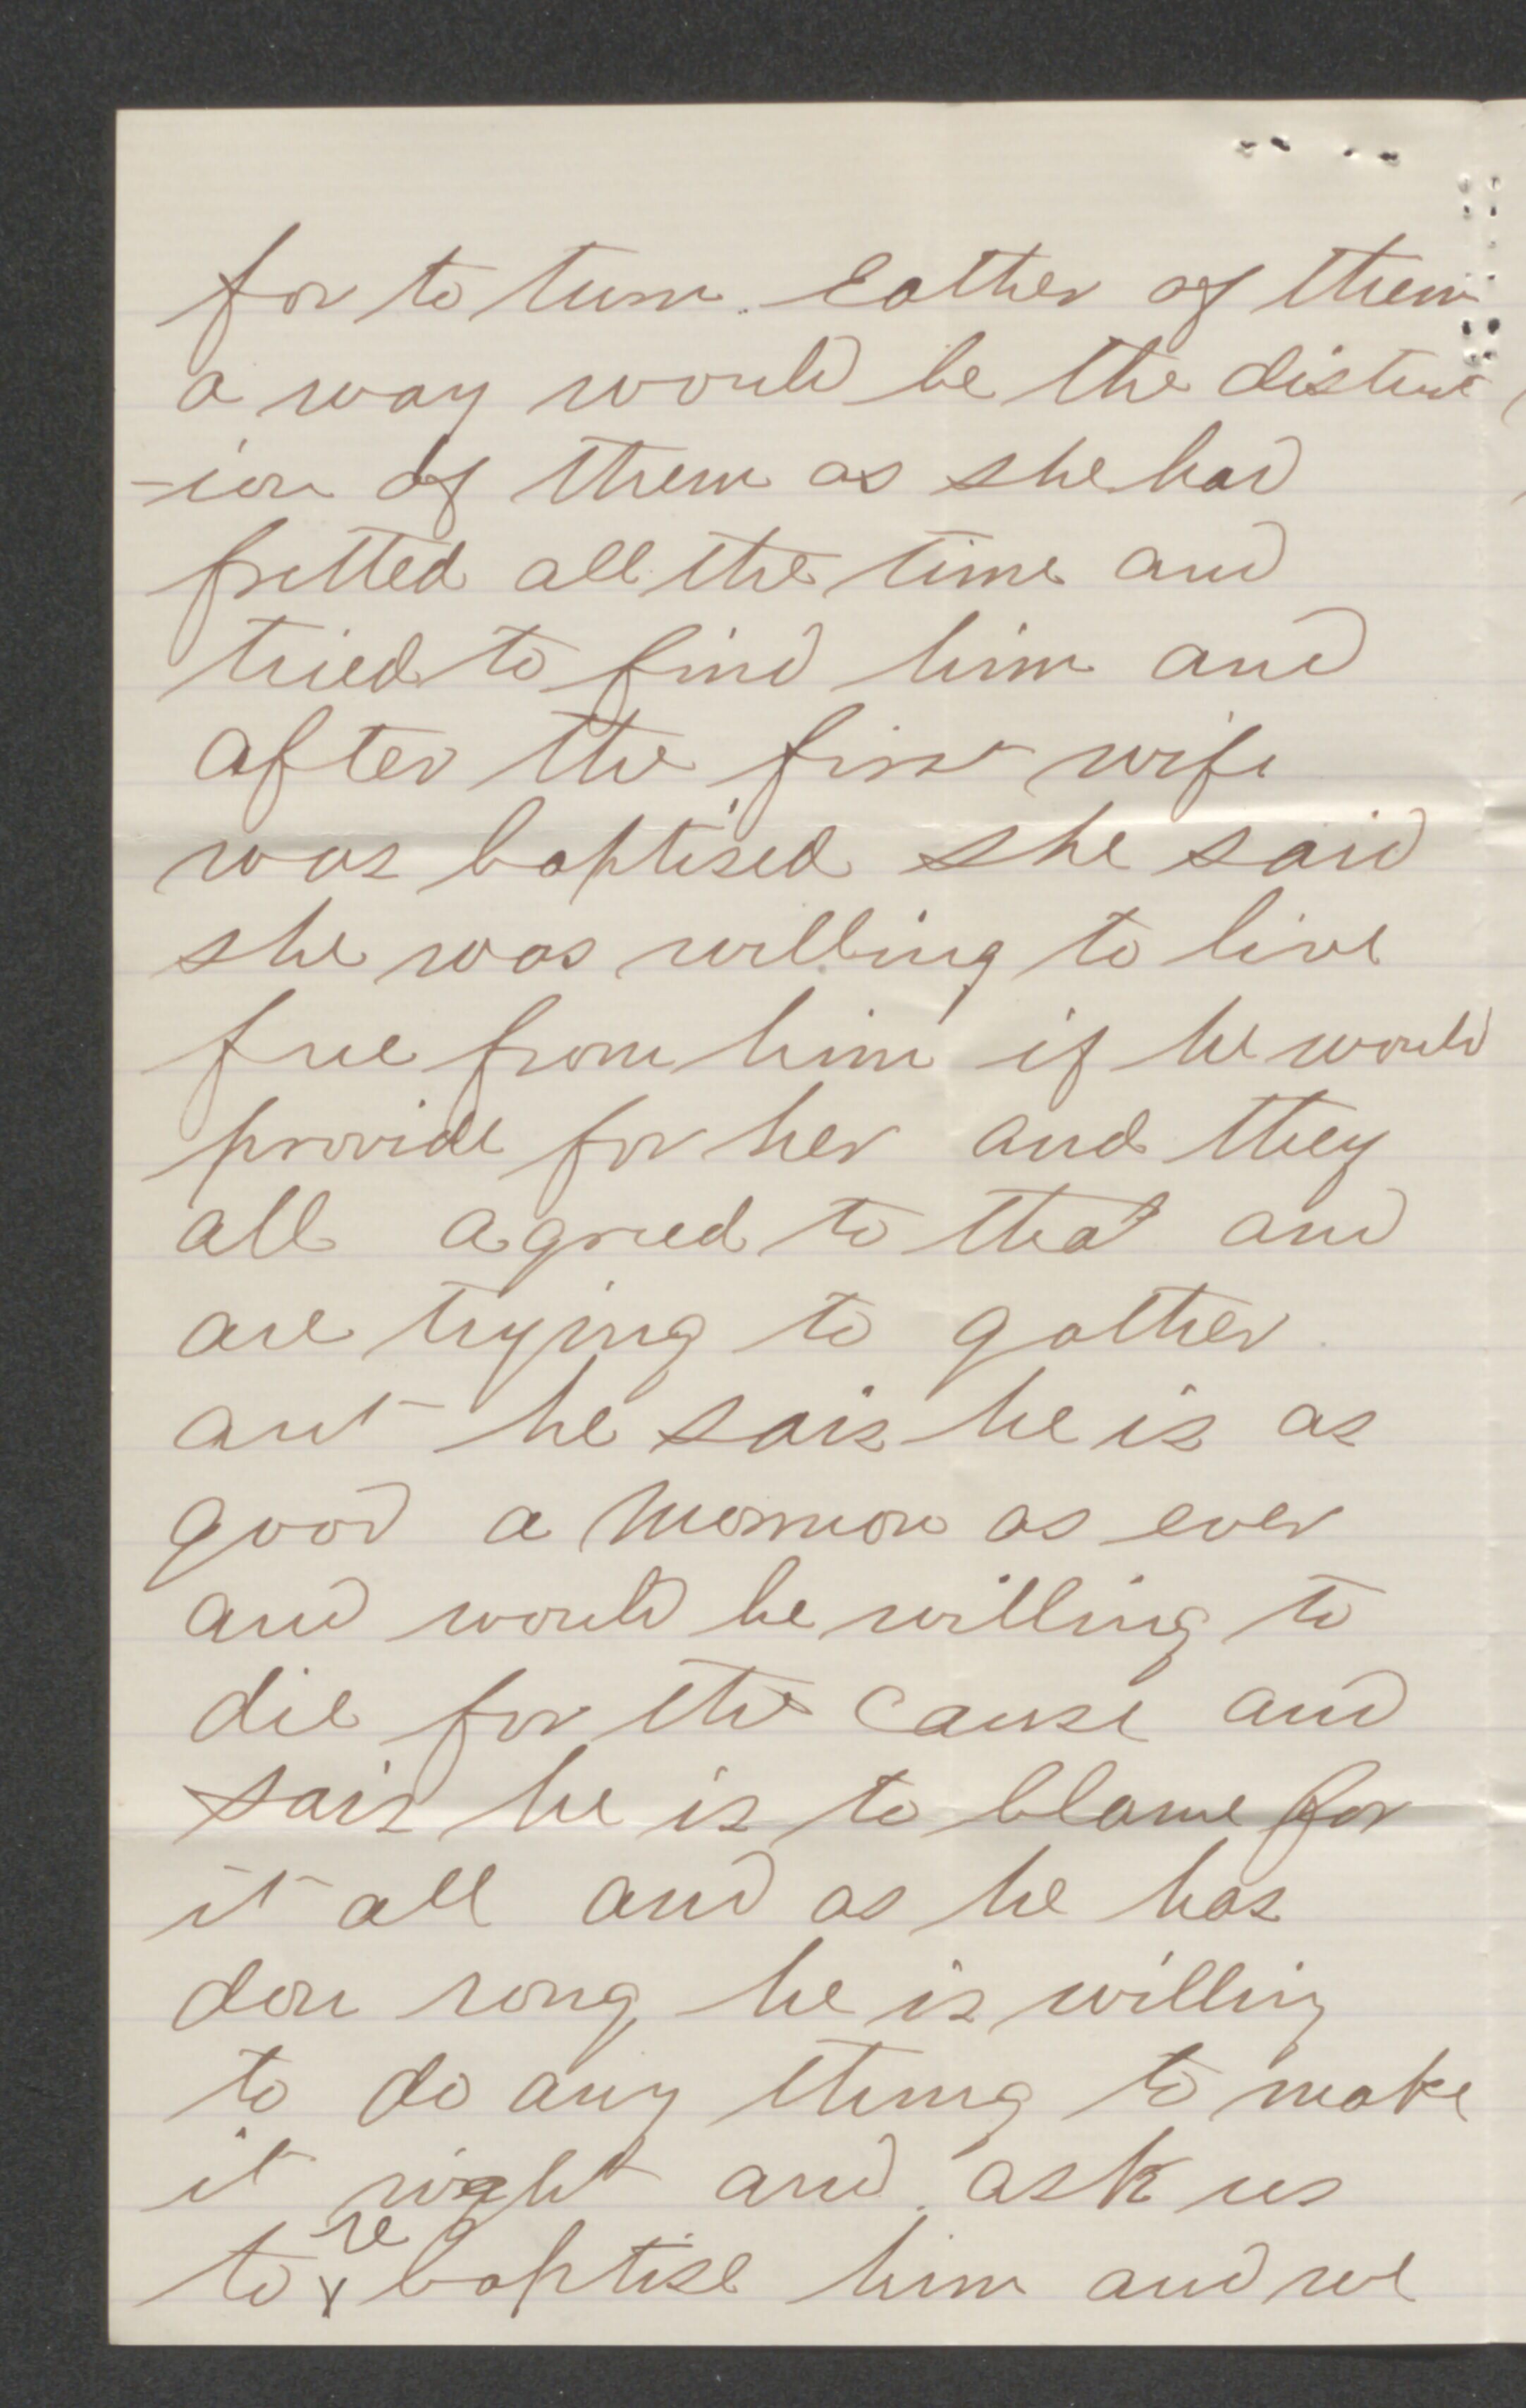 for to turn Eather of them
a way would be the distruct
-ion of them as she had
fretted all the time and
tried to find him and
after the first wife
was baptised she said
she was willing to live
free from him if he would
provide for her and they
all agreed to that and
are trying to gather
ant he sais he is as
good a Mormon as ever
and would be willing to
die for the cause and
sais he is to blame for
it all and as he has
don rong he is willing
to do any thing to make
it right and ask us
to re baptise him and we